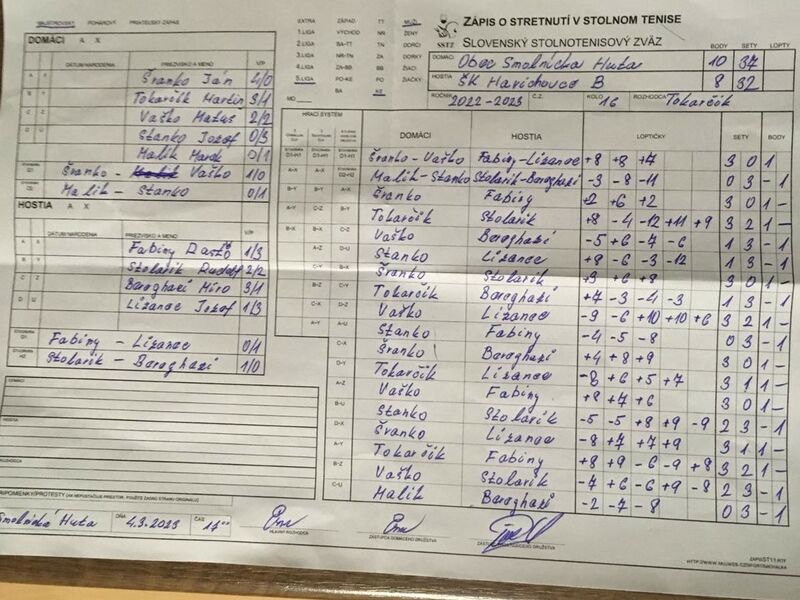 MAJSTROVSKÝ POHÁROVÝ PRIATEĽSKÝ ZÁPAS
DOMÁCI A X
DÁTUM NARODENIA PRIEZVISKO A MENO V/P
A X Švanko Ján 4/0
B Y Tokarčík Martin 3/1
C Z Vaško Matúš 2/2
D U Stanko Jozef 0/3
Malik Marek 0/1
D1 Švanko - Vaško 1/0
D2 Malik - Stanko 0/1
HOSTIA A X
DÁTUM NARODENIA PRIEZVISKO A MENO V/P
A X Fabiny 1/3
B Y Stolárik Rudolf 2/2
C Z Boroghazi Miro 3/1
D U Lizanec Jozef 1/3
Fabiny - Lizanec 0/1
Stolárik - Boroghazi 1/0
DOMÁCI
HOSTIA
ROZHODCA
PRIPOMIENKY/PROTESTY (AK NEPOSTAČUJE PRIESTOR, POUŽITE ZADNÚ STRANU ORIGINÁLU)
Smolnícka Huta DŇA 4.3.2023 ČAS 17⁰⁰
HLAVNÝ ROZHODCA
ZÁSTUPCA DOMÁCEHO DRUŽSTVA
EXTRA ZÁPAD TT MUŽI
1.LIGA VÝCHOD NR ŽENY
2.LIGA BA-TT TN DORCI
3.LIGA NR-TN ZA DORKY
4.LIGA ZA-BB BB ŽIACI
5.LIGA PO-KE PO ŽIAČKY
MO BA KE
ZÁPIS O STRETNUTÍ V STOLNOM TENISE
SSTZ SLOVENSKÝ STOLNOTENISOVÝ ZVÄZ
BODY SETY LOPTY
DOMÁCI Obec Smolnícka Huta 10 37
HOSTIA ŠK Harichovce B 8 32
ROČNÍK 2022-2023 Č.Z. KOLO 16 ROZHODCA Tokarčík
HRACÍ SYSTÉM DOMÁCI HOSTIA LOPTIČKY SETY BODY
Švanko - Vaško Fabiny - Lizanec +8 +8 +7 3 0 1 -
Malik - Stanko Stolárik - Boroghazi -3 -8 -11 0 3 - 1
Švanko Fabiny +2 +6 +2 3 0 1 -
Tokarčík Stolárik +8 -4 -12 +11 +9 3 2 1 -
Vaško Boroghazi -5 +6 -7 -6 1 3 - 1
Stanko Lizanec +8 -6 -3 -12 1 3 - 1
Švanko Stolárik +3 +6 +8 3 0 1 -
Tokarčík Boroghazi +7 -3 -4 -3 1 3 - 1
Vaško Lizanec -9 -6 +10 +10 +6 3 2 1 -
Stanko Fabiny -4 -5 -8 0 3 - 1
Švanko Boroghazi +4 +8 +9 3 0 1 -
Tokarčík Lizanec -8 +6 +5 +7 3 1 1 -
Vaško Fabiny +8 +7 +6 3 0 1 -
Stanko Stolárik -5 -5 +8 +9 -9 2 3 - 1
Švanko Lizanec -8 +7 +7 +9 3 1 1 -
Tokarčík Fabiny +8 +9 -6 -9 +8 3 2 1 -
Vaško Stolárik -7 +6 -6 +9 -8 2 3 - 1
Malik Boroghazi -2 -7 -8 0 3 - 1